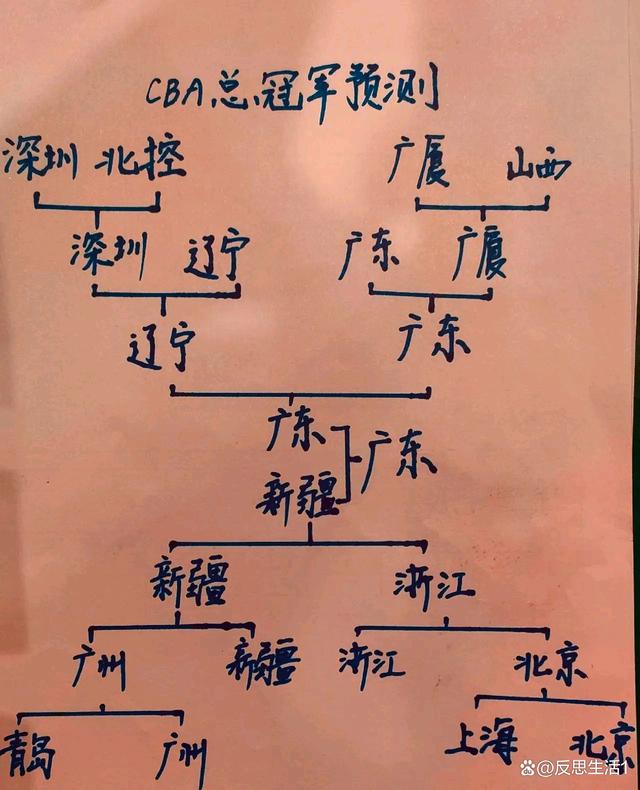 CBA总冠军预测
深圳 北控 广厦 山西
深圳 辽宁 广东 广厦
辽宁 广东
广东
广东
新疆
新疆 浙江
广州 新疆 浙江 北京
青岛 广州 上海 北京
@反思生活1